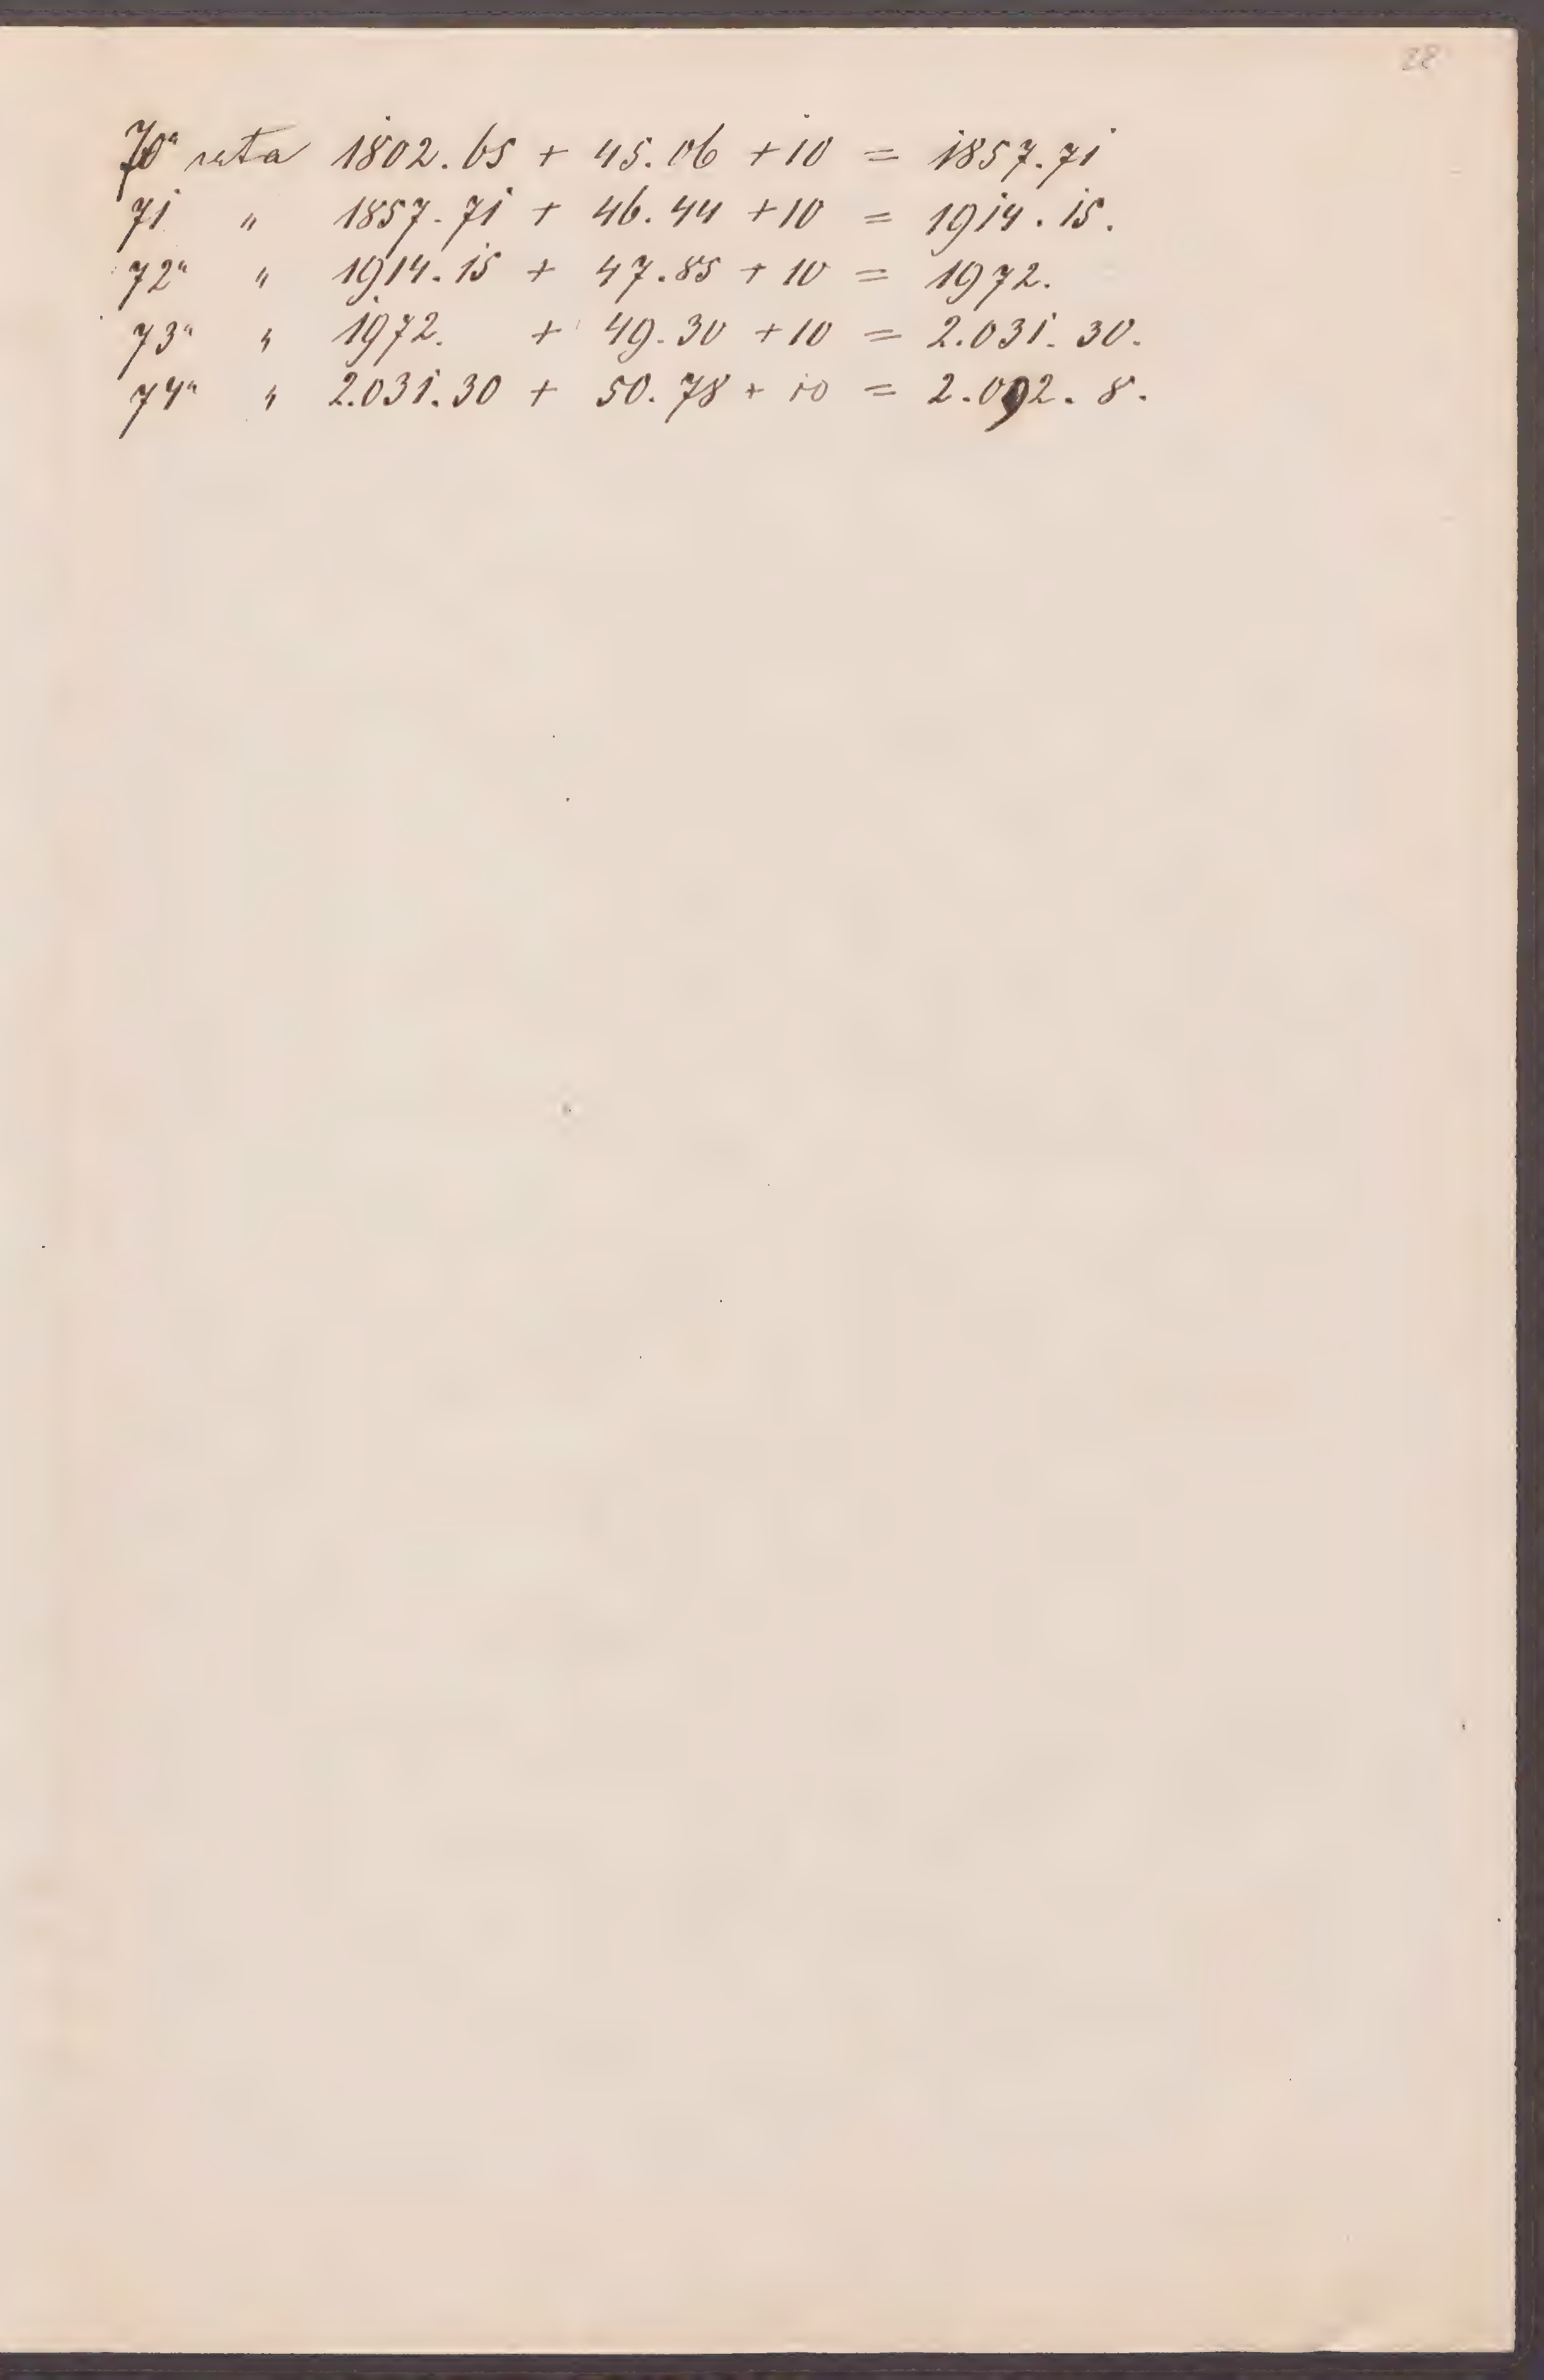 28
70ª rata 1802.65 + 45.06 + 10 = 1857.71
71 " 1857.71 + 46.44 + 10 = 1914.15.
72ª " 1914.15 + 47.85 + 10 = 1972.
73ª " 1972. + 49.30 + 10 = 2.031.30.
74ª " 2.031.30 + 50.78 + 10 = 2.092.8.